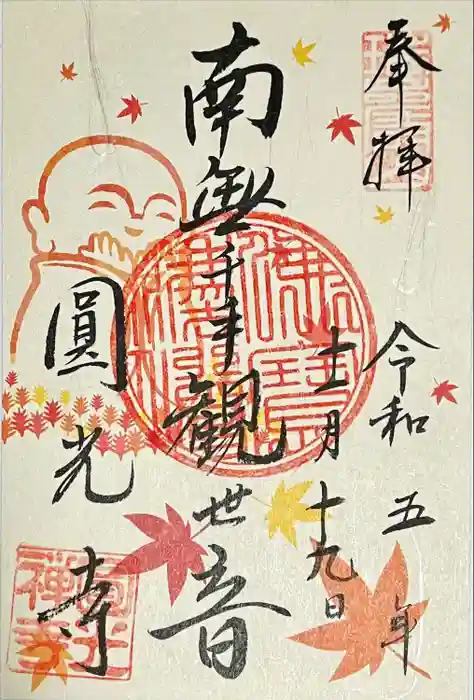 奉拝
令和五年
十一月十九日
南無千手観世音
圓光寺
佛法僧寶